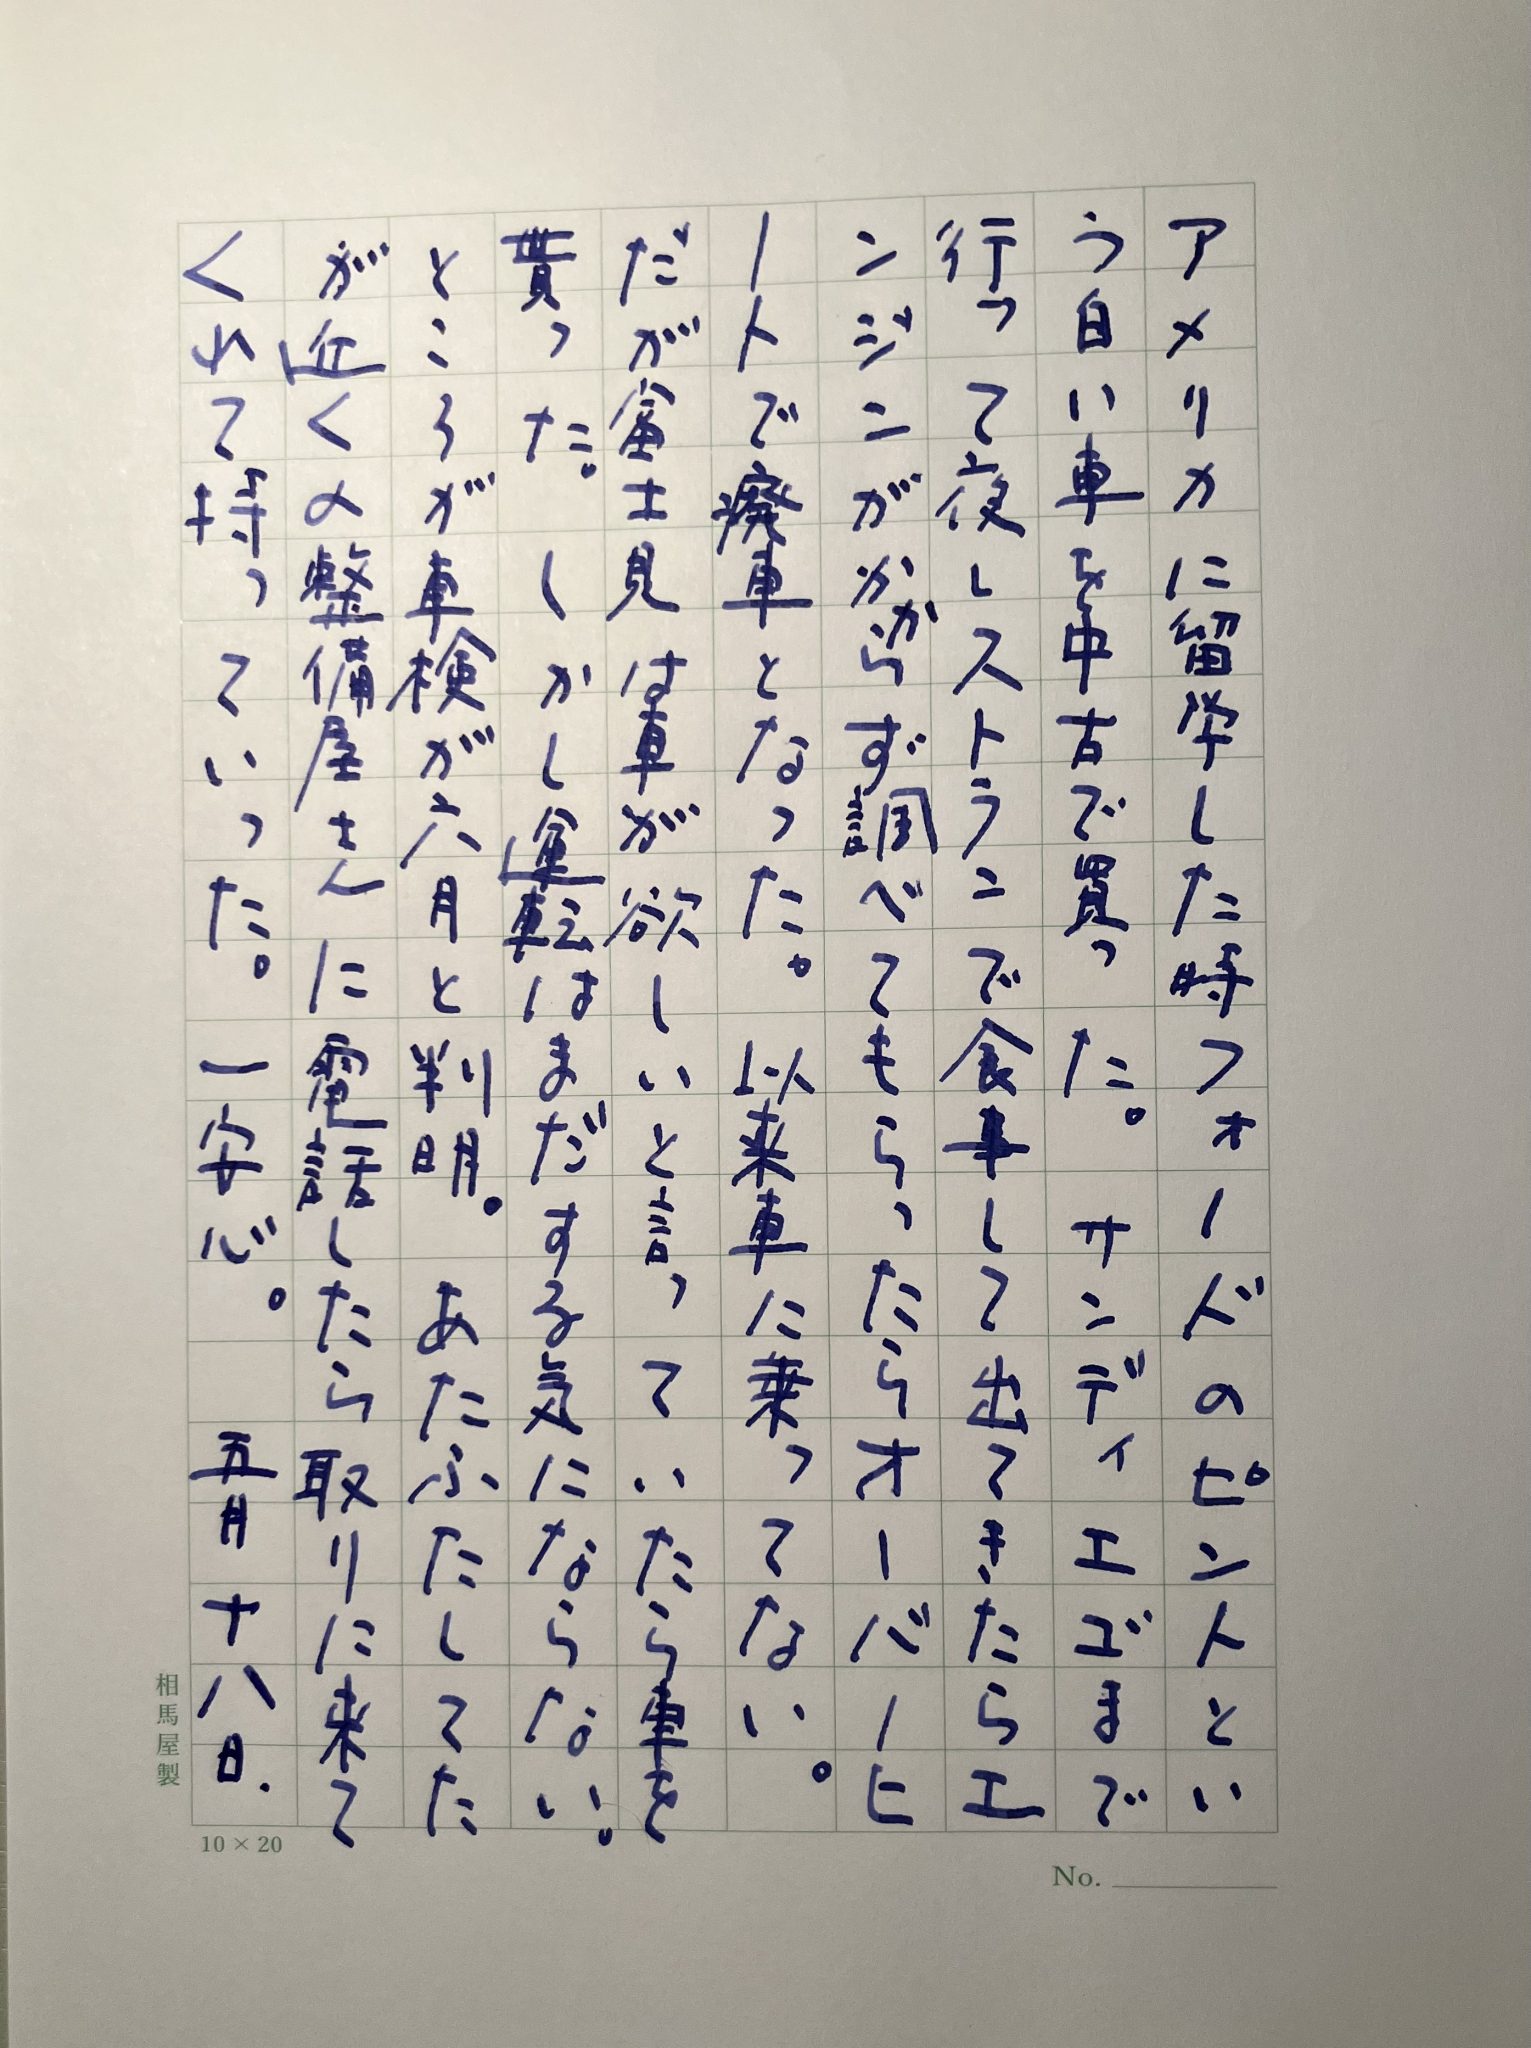 アメリカに留学した時フォードのピントとい
う白い車を中古で買った。サンディエゴまで
行って夜レストランで食事して出てきたらエ
ンジンがかからず調べてもらったらオーバーヒ
ートで廃車となった。以来車に乗ってない。
だが富士見は車が欲しいと言っていたら車を
貰った。しかし運転はまだする気にならない。
ところが車検が六月と判明。あたふたしてた
が近くの整備屋さんに電話したら取りに来て
くれて持っていった。一安心。 五月十八日.
相馬屋製
10×20
No.